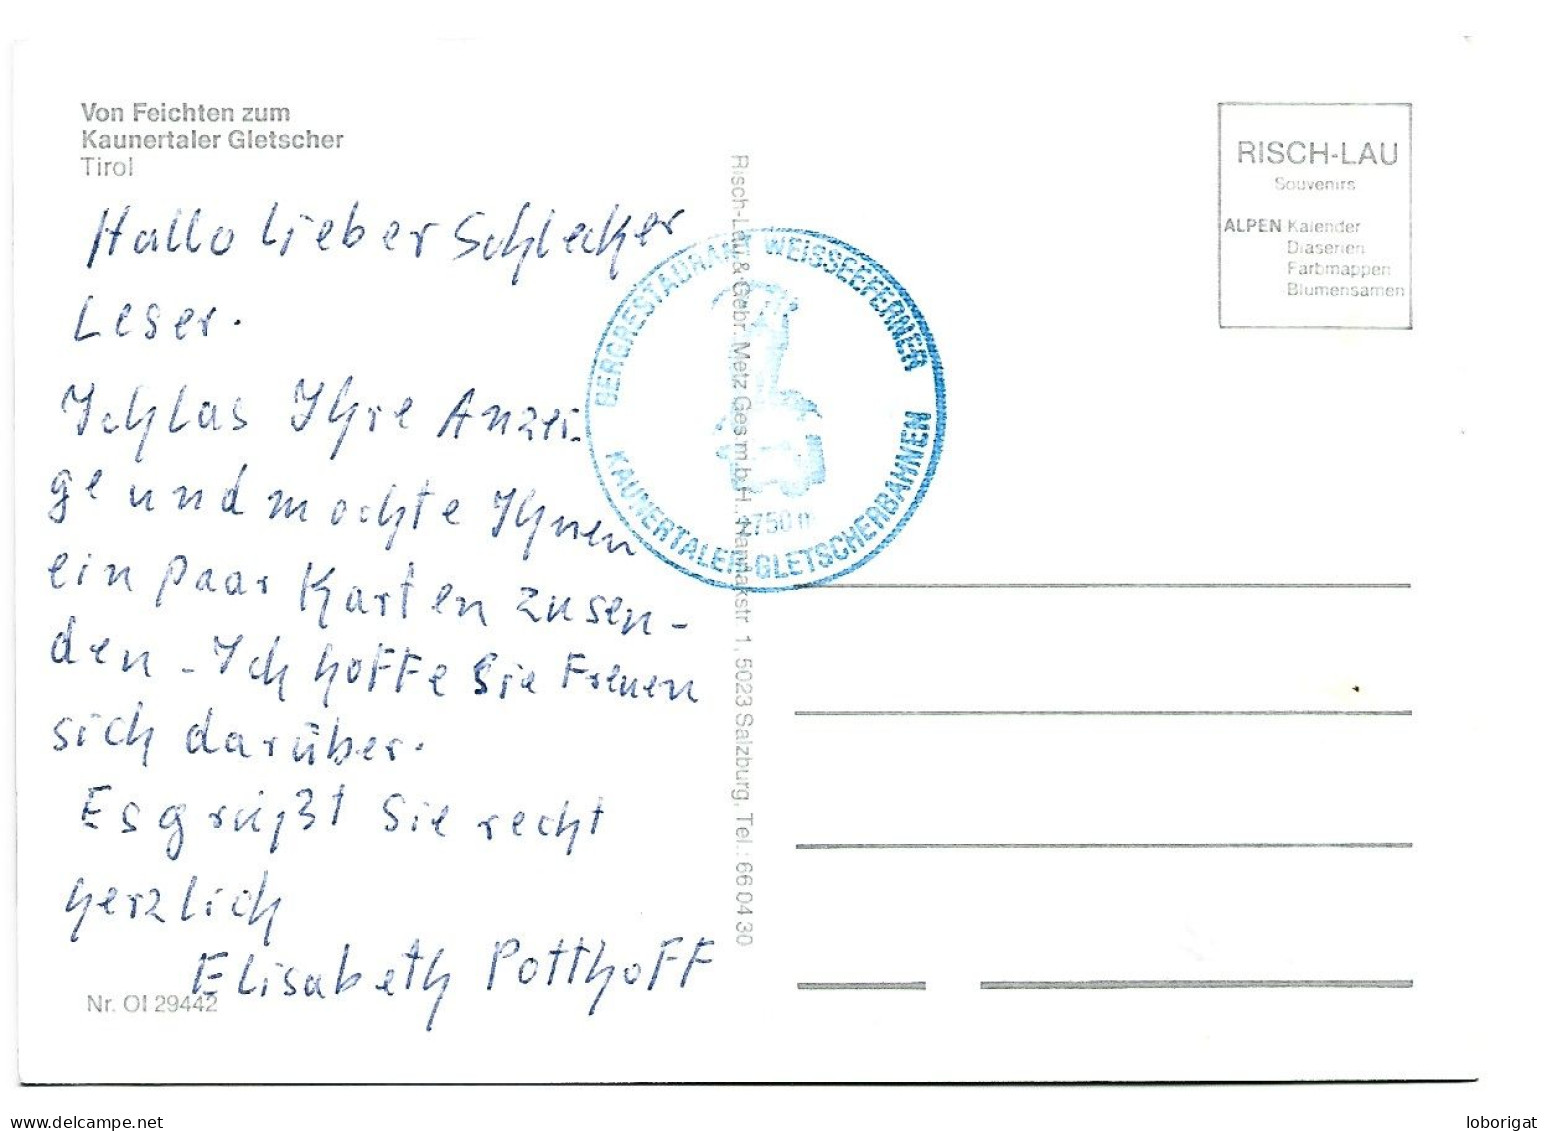 Von Feichten zum
Kaunertaler Gletscher
Tirol
Hallo lieber Schlecker
Leser.
Ich las Ihre Anzei-
ge und mochte Ihnen
ein paar Karten zusen-
den - Ich hoffe Sie Freuen
sich darüber.
Es grüßt Sie recht
herzlich
Elisabeth Potthoff
Nr. OI 29442
Risch-Lau & Gebr. Metz Ges.m.b.H., 1, 5023 Salzburg, Tel.: 66 04 30
BERGRESTAURANT WEISSEEFERNER
2750 m
KAUNERTALER GLETSCHERBAHNEN
RISCH-LAU
Souvenirs
ALPEN Kalender
Diaserien
Farbmappen
Blumensamen
www.delcampe.net
loborigat